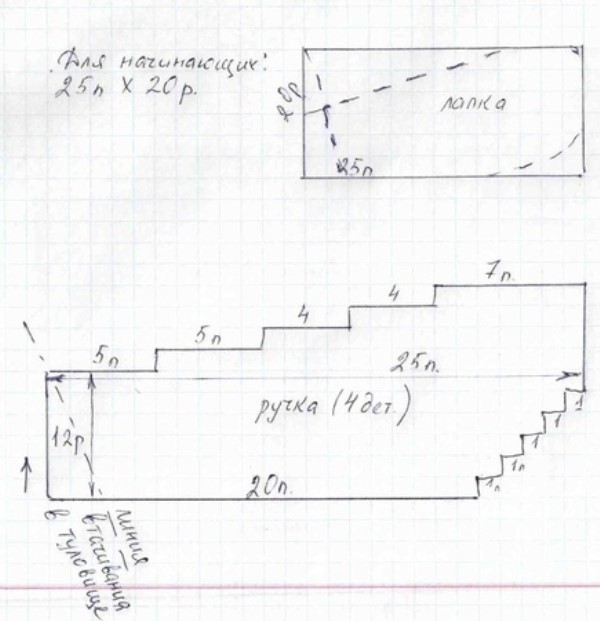 Для начинающих:
25п х 20р.
20р
лапка
25п
7п.
4
4
5п
5п
25п.
ручка (4 дет.)
12р
1
1
1
1п
1п
20п.
линия
втачивания
в туловище